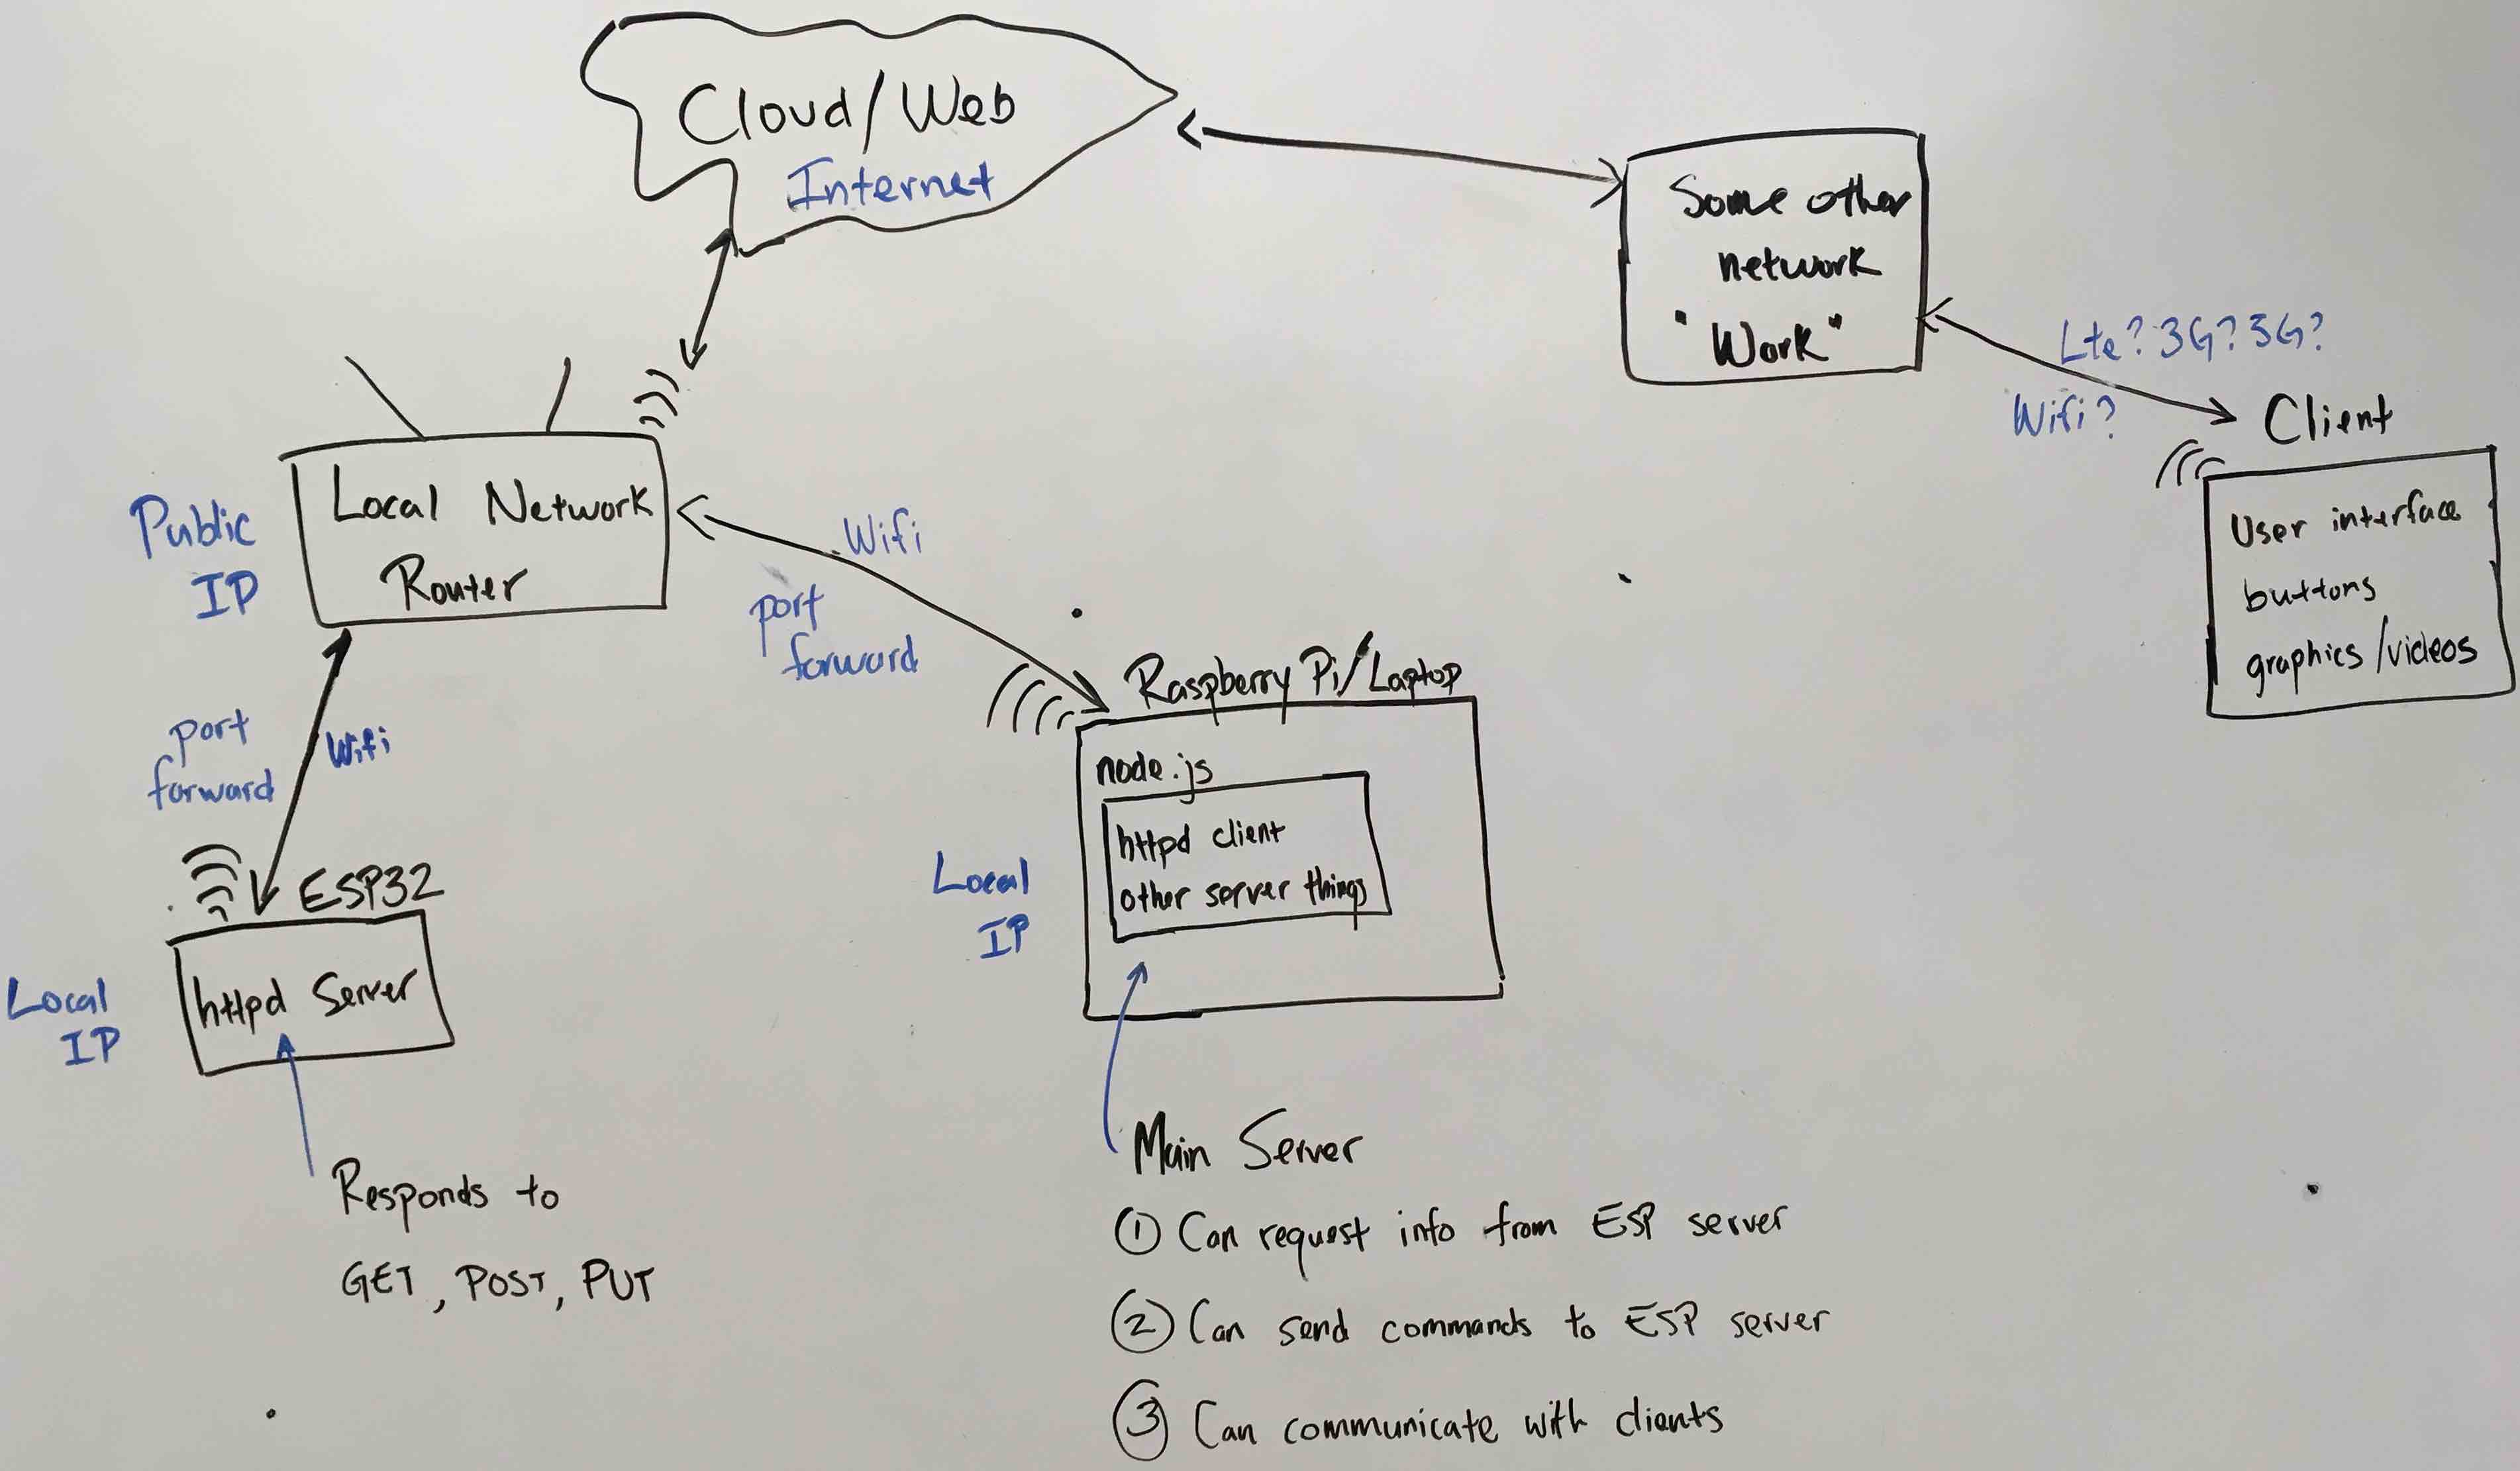 Cloud/Web
Internet
Some other
network
"Work"
Lte? 3G? 3G?
Wifi?
Client
User interface
buttons
graphics/videos
Public
IP
Local Network
Router
Wifi
port
forward
port
forward
Wifi
Raspberry Pi/Laptop
node.js
httpd client
other server things
Local
IP
ESP32
httpd Server
Local
IP
Responds to
GET, POST, PUT
Main Server
① Can request info from ESP server
② Can send commands to ESP server
③ Can communicate with clients